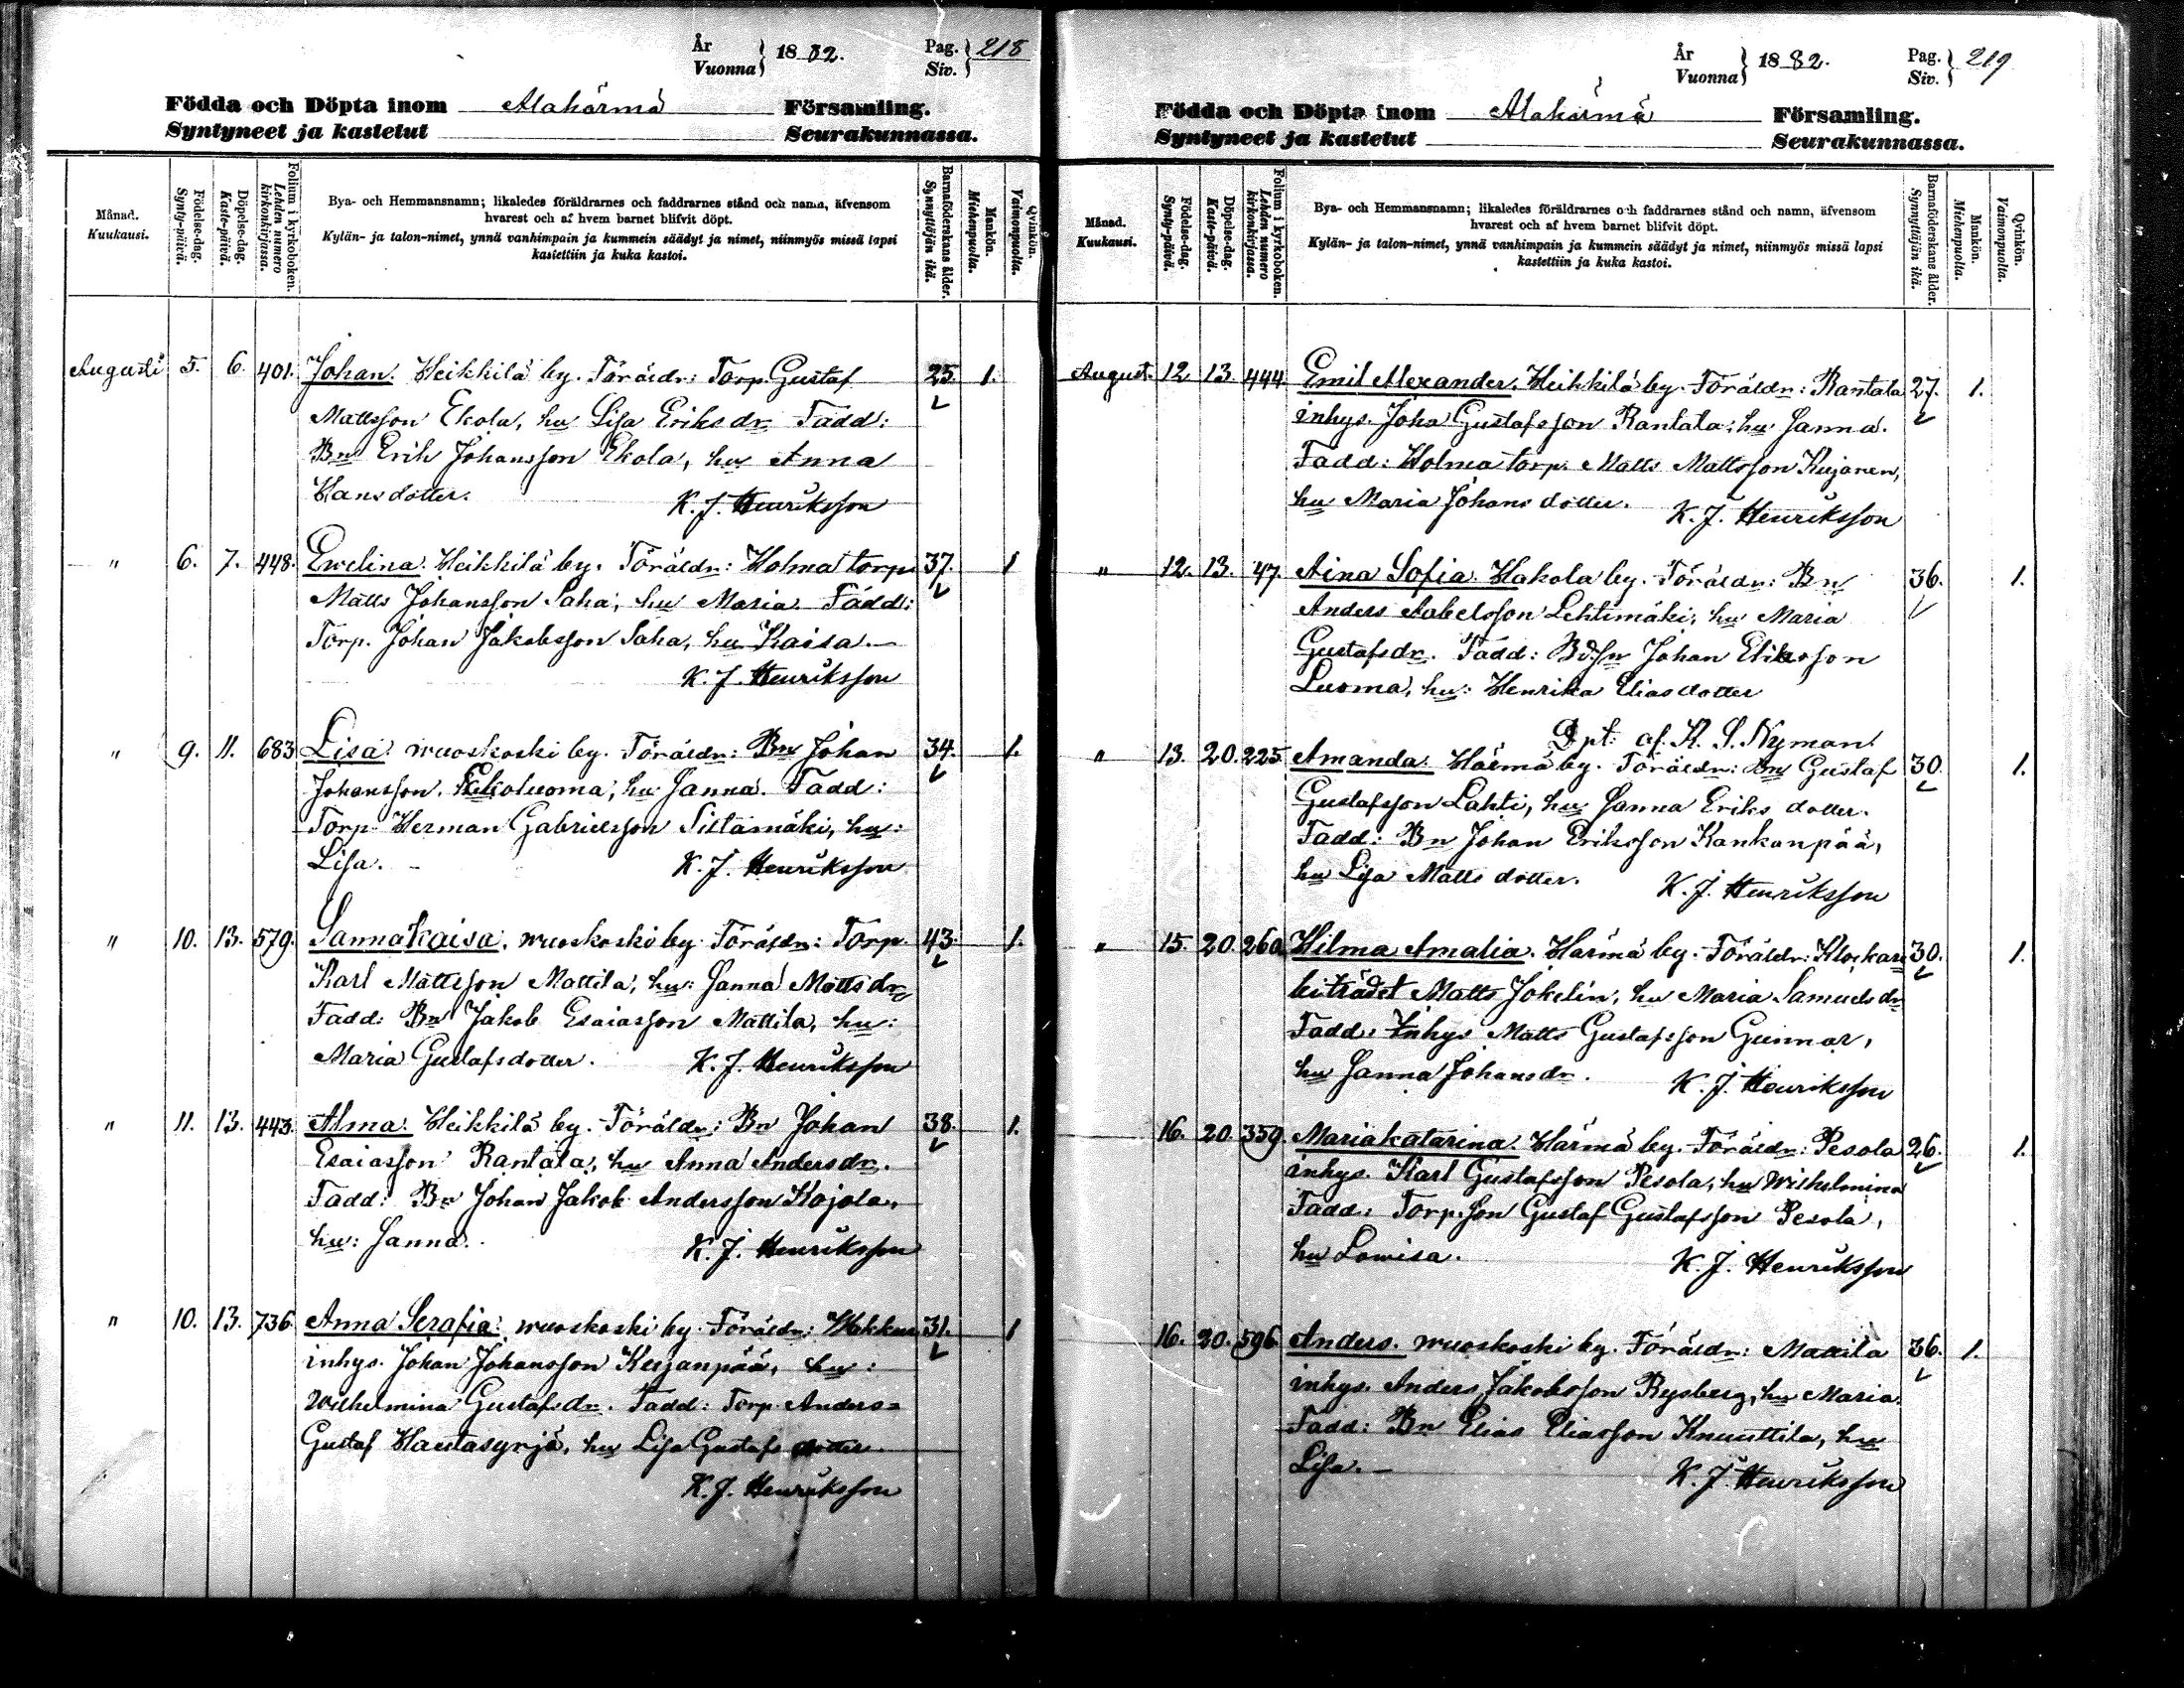 År
Vuonna } 1882.
Pag.
Siv. } 218
Födda och Döpta inom Alahärmä Församling.
Syntyneet ja kastetut Seurakunnassa.
Månad.
Kuukausi.
Födelse-dag.
Synty-päivä.
Döpelse-dag.
Kaste-päivä.
Folium i kyrkoboken.
Lehden numero
kirkonkirjassa.
Bya- och Hemmansnamn; likaledes föräldrarnes och faddrarnes stånd och namn, äfvensom
hvarest och af hvem barnet blifvit döpt.
Kylän- ja talon-nimet, ynnä vanhimpain ja kummein säädyt ja nimet, niinmyös missä lapsi
kastettiin ja kuka kastoi.
Barnaföderskans ålder.
Synnyttäjän ikä.
Mankön.
Miehenpuolta.
Qvinkön.
Vaimonpuolta.
Augusti 5. 6. 401. Johan. Heikkilä by. Föräldr: Torp. Gustaf 25. 1.
Mattsson Ekola, hu Lisa Eriksdr Fadd:
Bn Erik Johansson Ekola, hu Anna
Hansdotter. K. J. Henriksson
" 6. 7. 448. Ewelina. Heikkilä by. Föräldr: Holma torp. 37. 1
Matts Johansson Saha, hu Maria Fadd:
Torp. Johan Jakobsson Saha, hu Kaisa.
K. J. Henriksson
" 9. 11. 683 Lisa. wuoskoski by. Föräldr: Bn Johan 34. 1.
Johansson. Ekoluoma, hu Sanna. Fadd:
Torp. Herman Gabrielsson Siltamäki, hu:
Lisa. K. J. Henriksson
" 10. 13. 579. Sanna Kaisa. wuoskoski by. Föräldr: Torp. 43. 1.
Karl Mattsson Mattila, hu: Sanna Mattsdr
Fadd: Bn Jakob Esaiasson Mattila, hu:
Maria Gustafsdotter. K. J. Henriksson
" 11. 13. 443. Alma. Heikkilä by. Föräldr: Bn Johan 38. 1.
Esaiasson Rantala, hu Anna Andersdr.
Fadd: Bn Johan Jakob Andersson Kojola,
hu: Sanna. K. J. Henriksson
" 10. 13. 736. Anna Serafia. wuoskoski by. Föräldr: 31. 1
inhys. Johan Johansson Keijanpää, hu:
Wilhelmina Gustafsdr. Fadd: Torp. Anders=
Gustaf Hautasyrjä, hu Lisa Gustafs dotter.
K. J. Henriksson
År
Vuonna } 1882.
Pag.
Siv. } 219
Födda och Döpta inom Alahärmä Församling.
Syntyneet ja kastetut Seurakunnassa.
Månad.
Kuukausi.
Födelse-dag.
Synty-päivä.
Döpelse-dag.
Kaste-päivä.
Folium i kyrkoboken.
Lehden numero
kirkonkirjassa.
Bya- och Hemmansnamn; likaledes föräldrarnes och faddrarnes stånd och namn, äfvensom
hvarest och af hvem barnet blifvit döpt.
Kylän- ja talon-nimet, ynnä vanhimpain ja kummein säädyt ja nimet, niinmyös missä lapsi
kastettiin ja kuka kastoi.
Barnaföderskans ålder.
Synnyttäjän ikä.
Mankön.
Miehenpuolta.
Qvinkön.
Vaimonpuolta.
August. 12 13. 444 Emil Alexander. Heikkilä by. Föräldr: Rantala 27. 1.
inhys. Joha Gustafsson Rantala, hu Sanna.
Fadd: Holma torp. Matts Mattsson Kujanen,
hu Maria Johans dotter. K. J. Henriksson
" 12. 13. 47. Aina Sofia. Hakola by. Föräldr: Bn 36. 1.
Anders Aabelsson Lehtimäki, hu Maria
Gustafsdr. Fadd: Bdsn Johan Eliasson
Luoma, hu: Henrika Eliasdotter
Dpt: af. K. S. Nyman
" 13. 20. 225 Amanda. Härmä by. Föräldr: Bn Gustaf 30. 1.
Gustafsson Lahti, hu Sanna Eriks dotter.
Fadd: Bn Johan Eriksson Kankanpää,
hu Lisa Matts dotter. K. J. Henriksson
" 15. 20. 260 Hilma Amalia. Härmä by. Föräldr: Klockare 30. 1.
biträdet Matts Jokelin, hu Maria Samuelsdr
Fadd: Inhys Matts Gustafsson Gunnar,
hu Sanna Johansdr. K. J. Henriksson
16. 20. 359. Maria Katarina. Härmä by. Föräldr: Pesola 26. 1.
inhys. Karl Gustafsson Pesola, hu Wilhelmina
Fadd: Torp. son Gustaf Gustafsson Pesola,
hu Lowisa. K. J. Henriksson
16. 20. 596 Anders. wuoskoski by. Föräldr: Mattila 36. 1.
inhys. Anders Jakobsson Rysberg, hu Maria.
Fadd: Bn Elias Eliasson Knuuttila, hu
Lisa. K. J. Henriksson